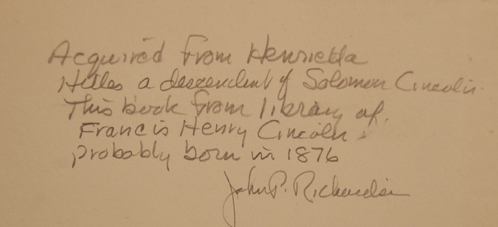 Acquired From Henrietta
Hilles a descendent of Solomon Lincoln.
This book from library of.
Francis Henry Lincoln.
probably born in 1876
John P. Richardson